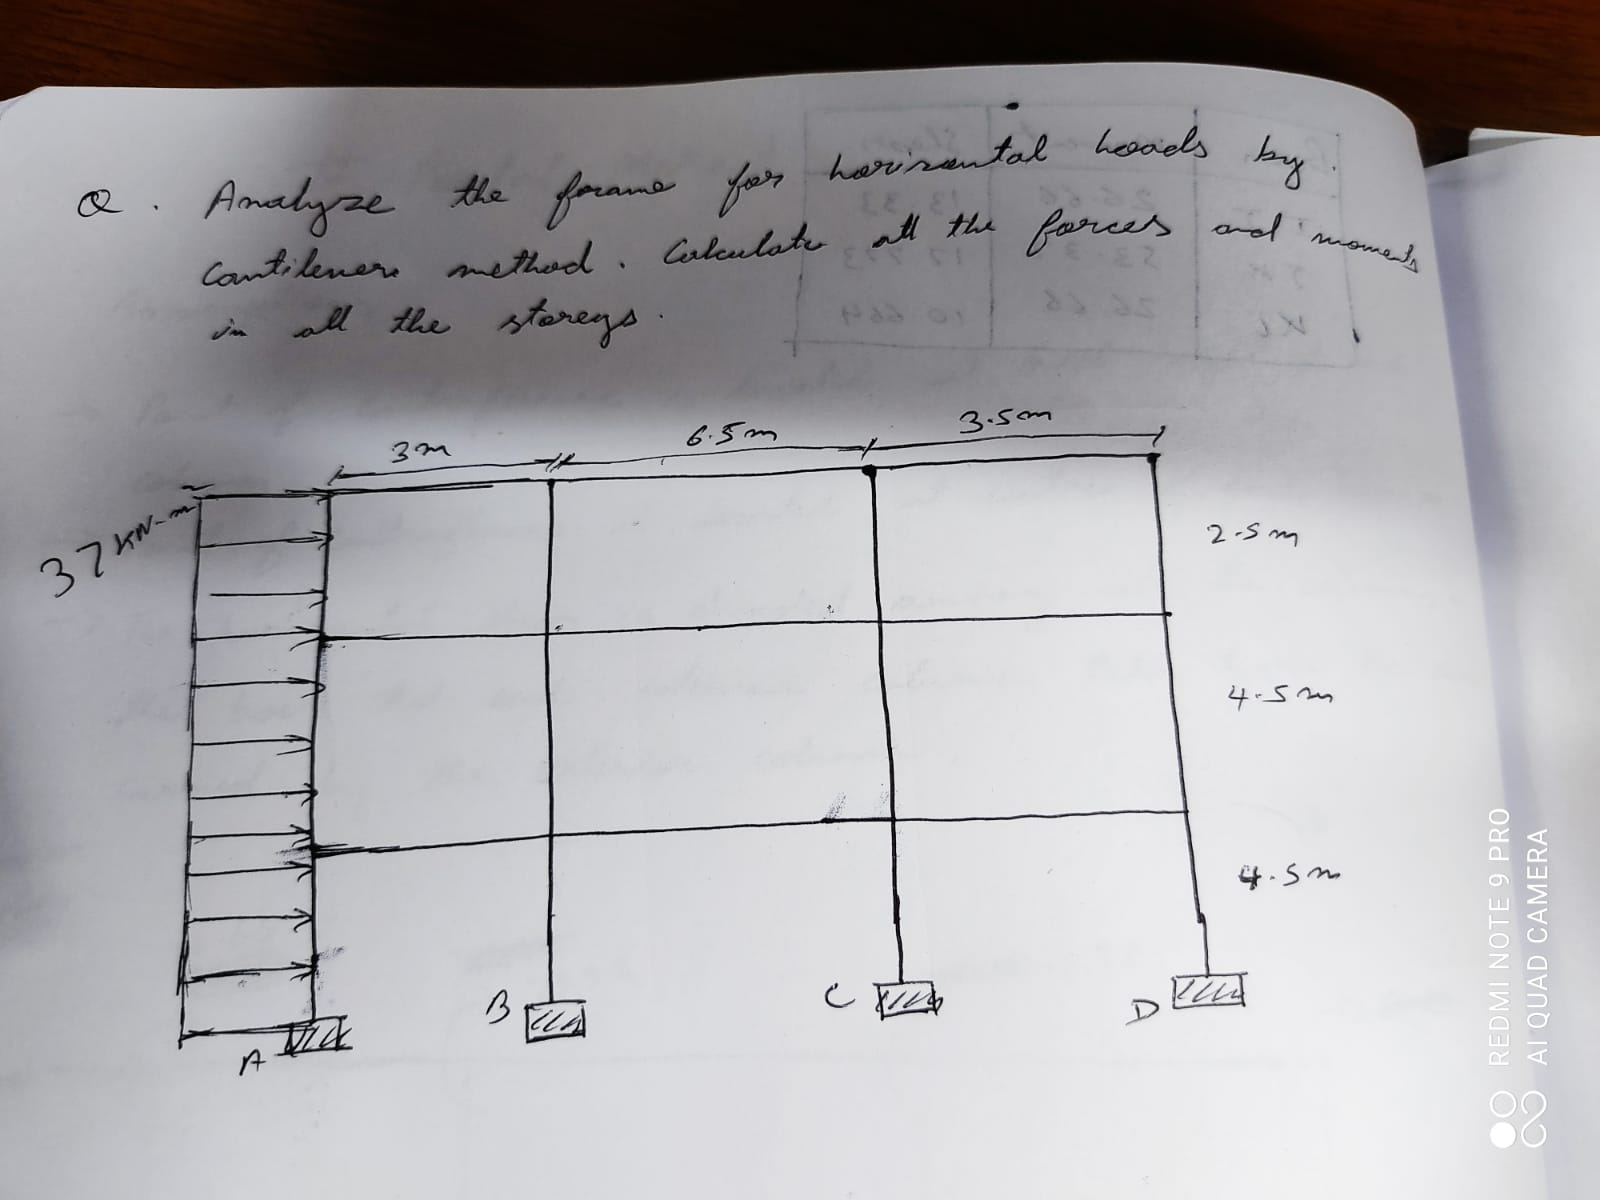 Q. Analyze the frame for horizontal loads by
Cantilever method. Calculate all the forces and moments
in all the storeys.
3m
6.5m
3.5m
37 KN-m
2.5m
4.5m
4.5m
A
B
C
D
REDMI NOTE 9 PRO
AI QUAD CAMERA